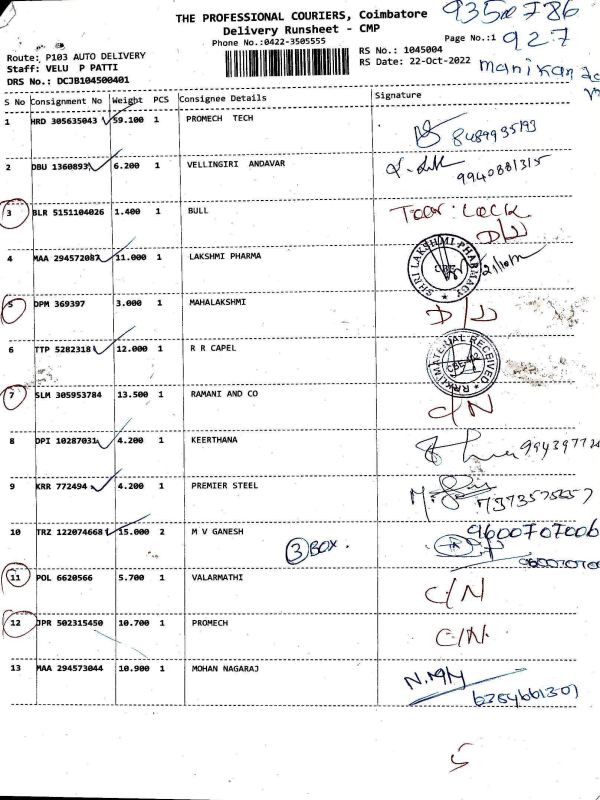 THE PROFESSIONAL COURIERS, Coimbatore
Delivery Runsheet - CMP
Phone No.:0422-3505555
Page No.:1
927
Route: P103 AUTO DELIVERY
RS No.: 1045004
Staff: VELU P PATTI
RS Date: 22-Oct-2022
DRS No.: DCJB104500401
S No Consignment No Weight PCS Consignee Details Signature
1 HRD 305635043 59.100 1 PROMECH TECH
2 DBU 1360893 6.200 1 VELLINGIRI ANDAVAR 9940881315
3 BLR 5151104026 1.400 1 BULL LOCK
D/L
4 MAA 294572087 11.000 1 LAKSHMI PHARMA SHRI LAKSHMI PHARMACY CBE
5 DPM 369397 3.000 1 MAHALAKSHMI D/L
6 TTP 5282318 12.000 1 R R CAPEL MATERIAL RECEIVED
7 SLM 305953784 13.500 1 RAMANI AND CO C/N
8 DPI 10287031 4.200 1 KEERTHANA
9 KRR 772494 4.200 1 PREMIER STEEL
10 TRZ 122074668 15.000 2 M V GANESH 3 BOX. 9600707006
11 POL 6620566 5.700 1 VALARMATHI C/N
12 JPR 502315450 10.700 1 PROMECH C/N
13 MAA 294573044 10.900 1 MOHAN NAGARAJ
5